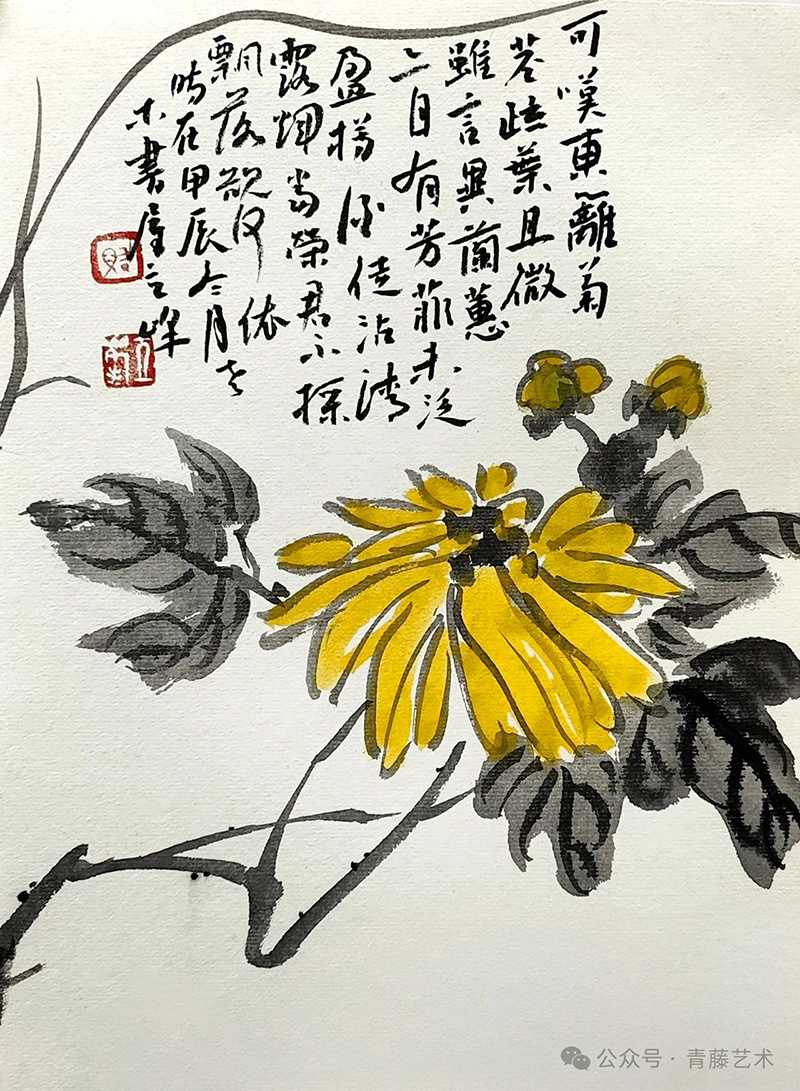 可嘆東籬菊
莖疏葉且微
雖言異蘭蕙
亦自有芳菲未泛
盈樽酒徒沾清
露輝當榮君不採
飄落欲何依
時在甲辰冬月
木書屋立峰
公众号·青藤艺术